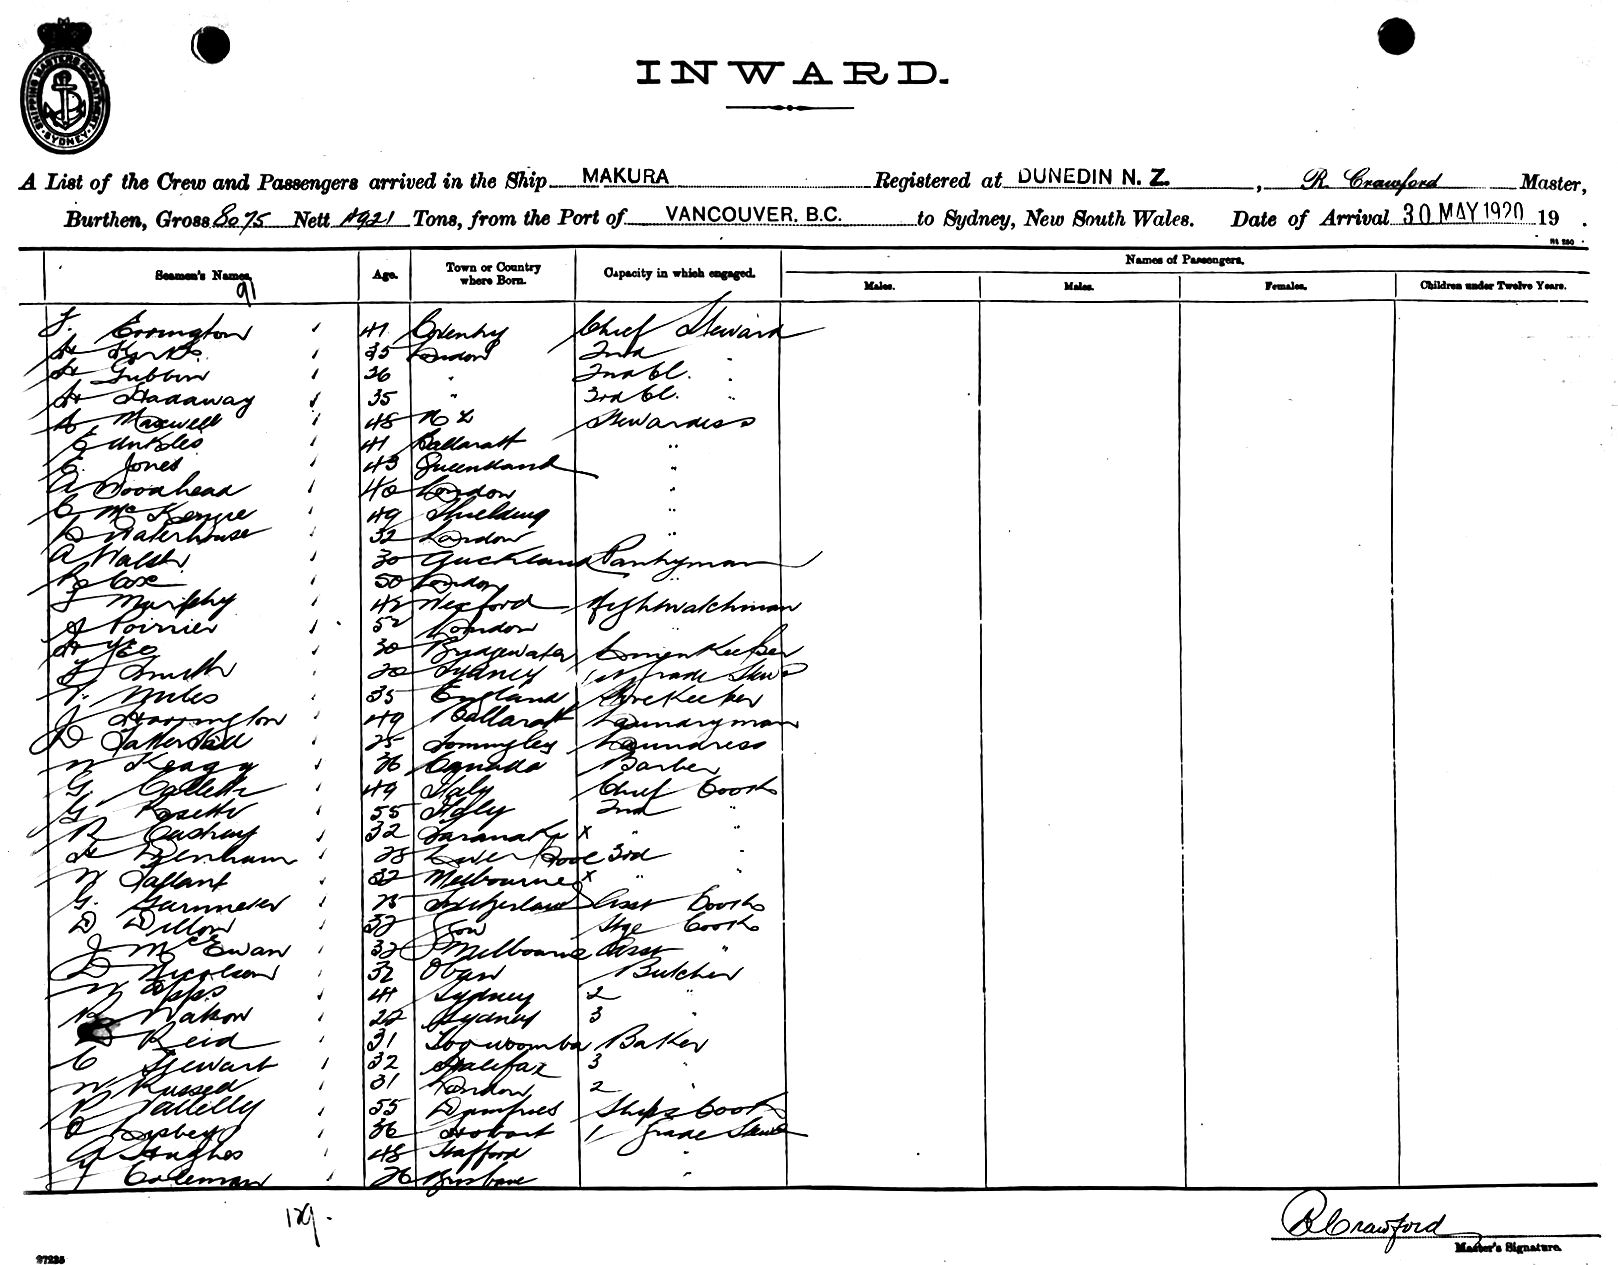 SHIPPING MASTERS DEPARTMENT SYDNEY
INWARD.
A List of the Crew and Passengers arrived in the Ship MAKURA Registered at DUNEDIN N. Z. , R Crawford Master,
Burthen, Gross 8075 Nett 4921 Tons, from the Port of VANCOUVER. B.C. to Sydney, New South Wales. Date of Arrival 30 MAY 1920 19 .
Seamen's Names. Age. Town or Country where Born. Capacity in which engaged. Names of Passengers.
Males. Males. Females. Children under Twelve Years.
91
F. Errington 41 Coventry Chief Steward
H 35 London 2nd "
H Gubbin 36 " 2nd Cl. "
H Hadaway 35 " 3rd Cl. "
A Maxwell 48 N Z Stewardess
E Unkles 41 Ballaratt "
E. Jones 43 Queensland "
A Woodhead 40 London "
C McKenzie 49 "
Waterhouse 32 London "
A Walsh 30 Auckland Pantryman
R Cox 50 London
J Murphy 42 Wexford Nightwatchman
A Poirrier 52 London "
H Yeo 30 Bridgewater Linen Keeper
F Smith 20 Sydney 1st Grade Stew
T. Miles 35 England Storekeeper
J Harrington 49 Ballaratt Laundryman
D Tattersall 25 Laundress
W Keagy 36 Canada Barber
G. 49 Italy Chief Cook
G Rosetti 55 Italy 2nd "
R 32 Taranaki x " "
H Denham 28 Liverpool 3rd "
W Tallant 32 Melbourne x " "
G. 25 Switzerland Asst Cook
D Dillon 32 Stge Cook
J McEwan 32 Melbourne Asst "
D Nicolson 32 Oban Butcher
W Epps 41 Sydney 2 "
R 22 Sydney 3 "
Reid 31 Toowoomba Baker
C Stewart 32 Halifax 3 "
W Russell 31 London 2 "
P 55 Dumfries Ships Cook
36 Hobart 1 Grade Stew
A Hughes 48 Stafford "
J Coleman 26 Brisbane "
129.
R Crawford
Master's Signature.
87235